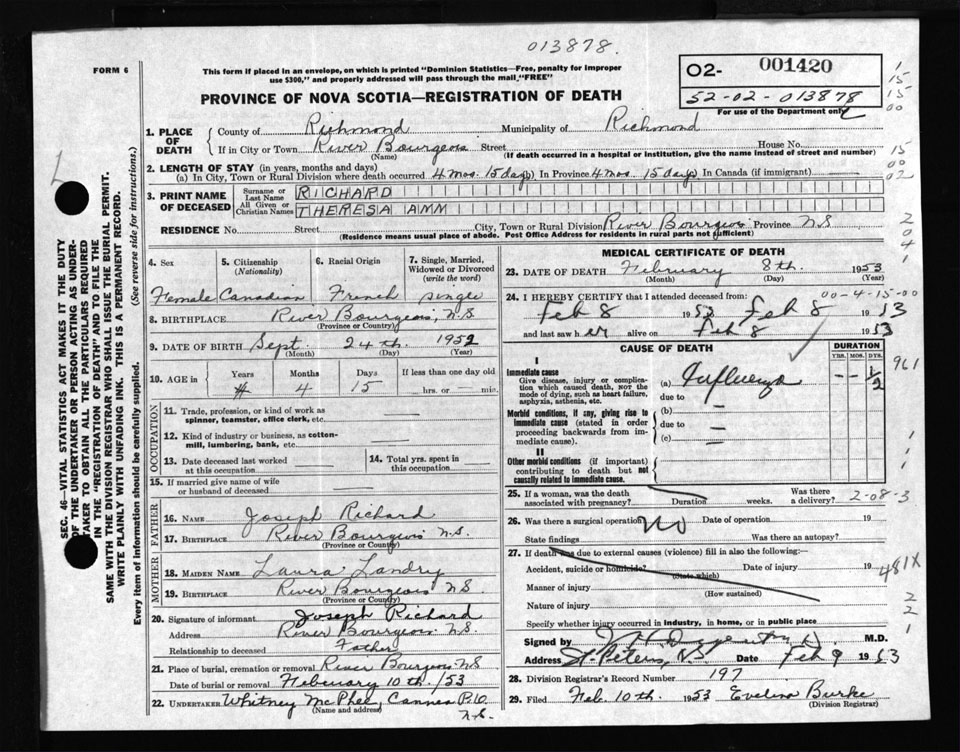 013878.
FORM 6
This form if placed in an envelope, on which is printed "Dominion Statistics—Free, penalty for improper
use $300," and properly addressed will pass through the mail "FREE"
O2- 001420
52-02-013878
For use of the Department only
PROVINCE OF NOVA SCOTIA—REGISTRATION OF DEATH
1. PLACE OF DEATH
County of Richmond Municipality of Richmond
If in City or Town River Bourgeois Street House No.
(Name) (If death occurred in a hospital or institution, give the name instead of street and number)
2. LENGTH OF STAY (in years, months and days)
(a) In City, Town or Rural Division where death occurred 4 mos. 15 days In Province 4 mos. 15 days In Canada (if immigrant)
3. PRINT NAME OF DECEASED
Surname or Last Name RICHARD
All Given or Christian Names THERESA AMM
RESIDENCE No. Street City, Town or Rural Division River Bourgeois Province N S
(Residence means usual place of abode. Post Office Address for residents in rural parts not sufficient)
4. Sex
Female
5. Citizenship
(Nationality)
Canadian
6. Racial Origin
French
7. Single, Married, Widowed or Divorced
(write the word)
single
8. BIRTHPLACE River Bourgeois, N.S
(Province or Country)
9. DATE OF BIRTH Sept. 24th. 1952
(Month) (Day) (Year)
10. AGE in
Years Months Days If less than one day old
4 15 hrs. or min.
OCCUPATION
11. Trade, profession, or kind of work as
spinner, teamster, office clerk, etc.
12. Kind of industry or business, as cotton-
mill, lumbering, bank, etc.
13. Date deceased last worked
at this occupation
14. Total yrs. spent in
this occupation
15. If married give name of wife
or husband of deceased
FATHER
16. NAME Joseph Richard
17. BIRTHPLACE River Bourgeois N.S.
(Province or Country)
MOTHER
18. MAIDEN NAME Laura Landry
19. BIRTHPLACE River Bourgeois N S
(Province or Country)
20. Signature of informant Joseph Richard
Address River Bourgeois N.S.
Relationship to deceased Father
21. Place of burial, cremation or removal River Bourgeois N S
Date of burial or removal February 10th. /53
22. UNDERTAKER Whitney McPhee, P.O.
(Name and address)
N.S.
MEDICAL CERTIFICATE OF DEATH
23. DATE OF DEATH February 8th. 1953
(Month) (Day) (Year)
00-4-15-00
24. I HEREBY CERTIFY that I attended deceased from:
Feb 8 1953 Feb 8 1953
and last saw her alive on Feb 8 1953
CAUSE OF DEATH
DURATION
YRS. MOS. DYS.
I
Immediate cause
Give disease, injury or complica-
tion which caused death, NOT the
mode of dying, such as heart failure,
asphyxia, asthenia, etc.
(a) Influenza — — 1/2
due to
Morbid conditions, if any, giving rise to
immediate cause (stated in order
proceeding backwards from im-
mediate cause).
(b) —
due to —
(c) —
II
Other morbid conditions (if important)
contributing to death but not
causally related to immediate cause.
25. If a woman, was the death
associated with pregnancy? Duration weeks. Was there
a delivery?
2-08-3
26. Was there a surgical operation No Date of operation 19
State findings Was there an autopsy?
27. If death was due to external causes (violence) fill in also the following:—
Accident, suicide or homicide? Date of injury 19
(State which)
Manner of injury
(How sustained)
Nature of injury
Specify whether injury occurred in industry, in home, or in public place
Signed by M.D.
Address St. Peters, N.S Date Feb 9 1953
28. Division Registrar's Record Number 197
29. Filed Feb. 10th. 1953 Evelina Burke
(Division Registrar)
SEC. 46—VITAL STATISTICS ACT MAKES IT THE DUTY
OF THE UNDERTAKER OR PERSON ACTING AS UNDER-
TAKER TO OBTAIN ALL THE PARTICULARS REQUIRED
IN THE "REGISTRATION OF DEATH" AND TO FILE THE
SAME WITH THE DIVISION REGISTRAR WHO SHALL ISSUE THE BURIAL PERMIT.
WRITE PLAINLY WITH UNFADING INK. THIS IS A PERMANENT RECORD.
Every item of information should be carefully supplied. (See reverse side for instructions.)
1
15
15
00
15
00
02
2
0
4
1
961
481X
2
2
1